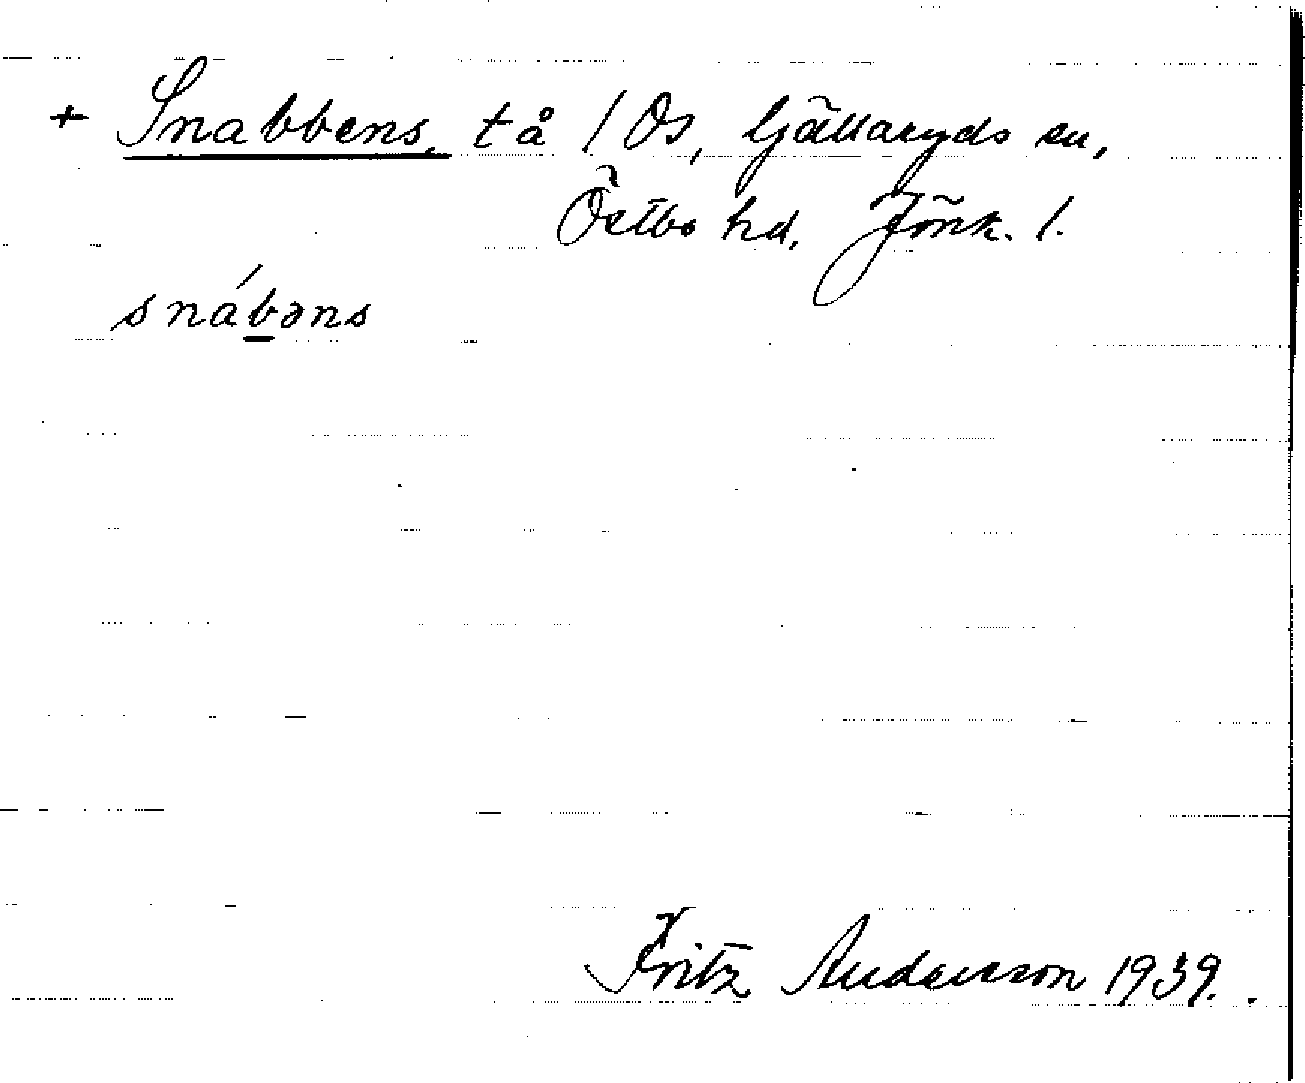 + Snabbens, tå / Os, Gjällaryds sn,
Östbo hd, Jönk. l.
snábəns
Fritz Andersson 1939.